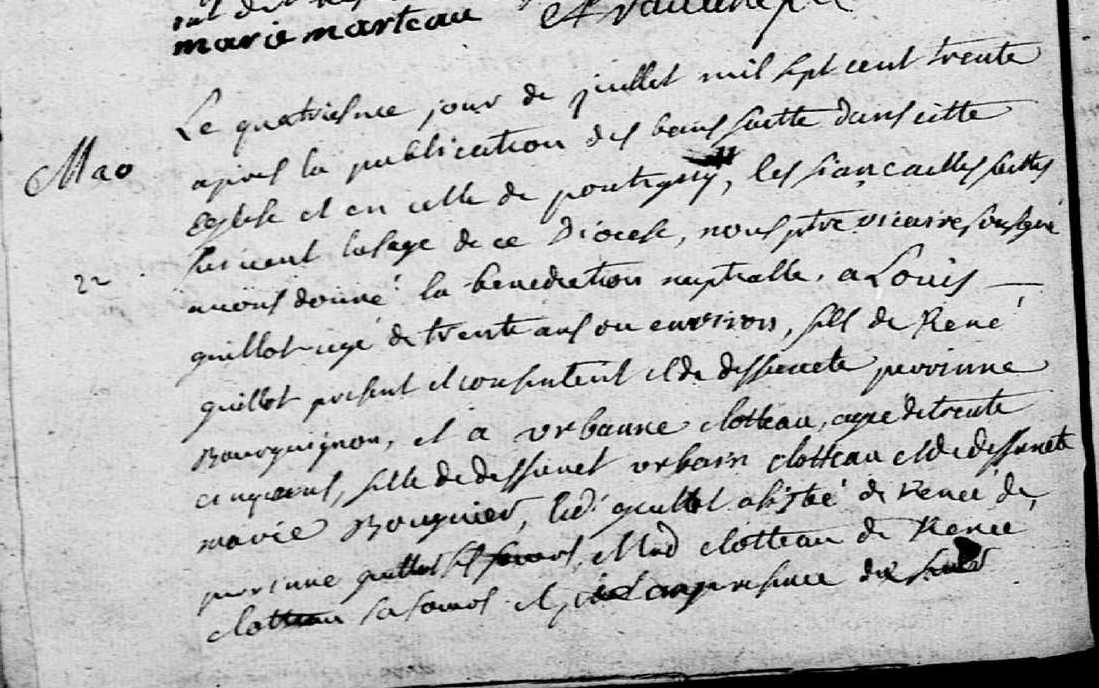 marie marteau
Le quatriesme jour de juillet mil sept cent trente
Mar
apres la publication des bans faitte dans cette
Eglise et en celle de pontigny, les fiançailles faittes
suivent lusage de ce Diocese, nous ptre vicaire sousigné
22
avons donné la benediction nuptialle, a Louis
guillot agé de trente ans ou environ, fils de René
guillot present et consentent et de deffuncte perrinne
Bourguignon, et a urbanne clotteau, agée de trente
cinq ans, fille de deffunct urbain clotteau et de deffuncte
marie Bouguier, led. guillot assisté de Renee de
perinne guillot ses soeurs, et lad clotteau de Renée
clotteau sa soeur et en presence des